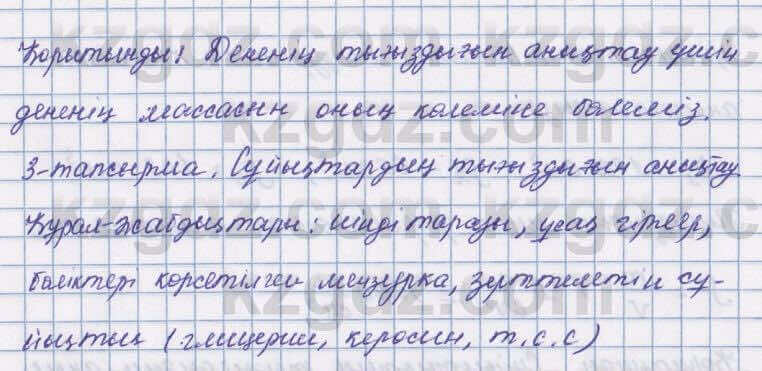 Қорытынды: Дененің тығыздығын анықтау үшін
дененің массасын оның көлеміне бөлеміз.
3-тапсырма. Сұйықтардың тығыздығын анықтау
Құрал-жабдықтары: иінді таразы, ұсақ гірлер,
бөліктері көрсетілген мензурка, зерттелетін сұ-
йықтық (глицерин, керосин, т.с.с)
kzgdz.com